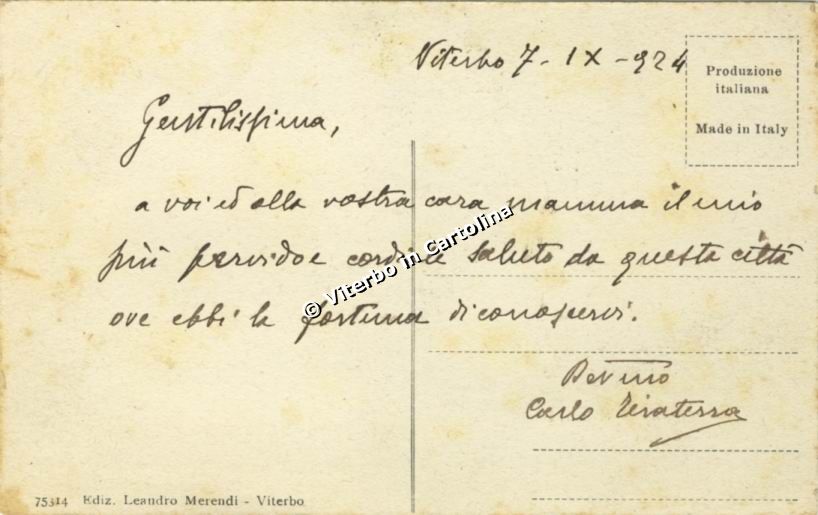 Viterbo 7 - IX - 924
Produzione
italiana
Made in Italy
Gentilissima,
a voi ed alla vostra cara mamma il mio
più fervido e cordiale saluto da questa città
ove ebbi la fortuna di conoscervi.
Carlo
© Viterbo in Cartolina
75314 Ediz. Leandro Merendi - Viterbo